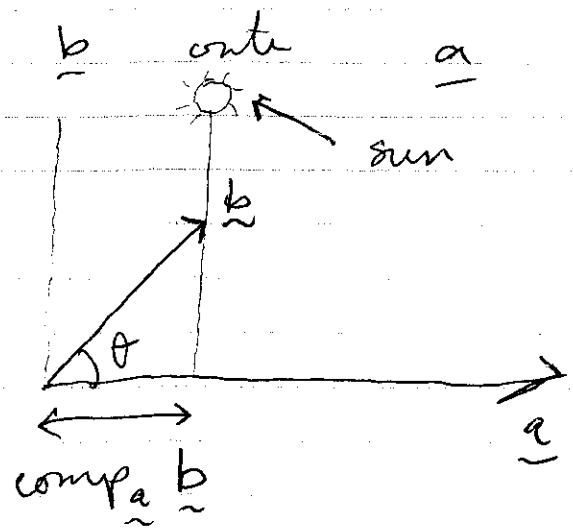 b onto a
sun
b
θ
a
comp a b